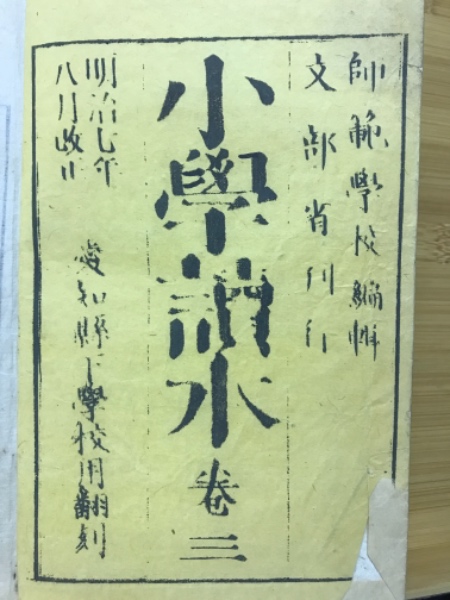 師範學校編輯
文部省刊行
小學讀本卷三
明治七年
八月改正
愛知縣下學校用翻刻